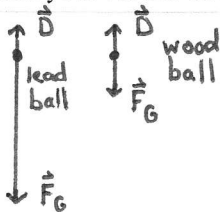 D⃗
lead
ball
F⃗_G
D⃗
wood
ball
F⃗_G